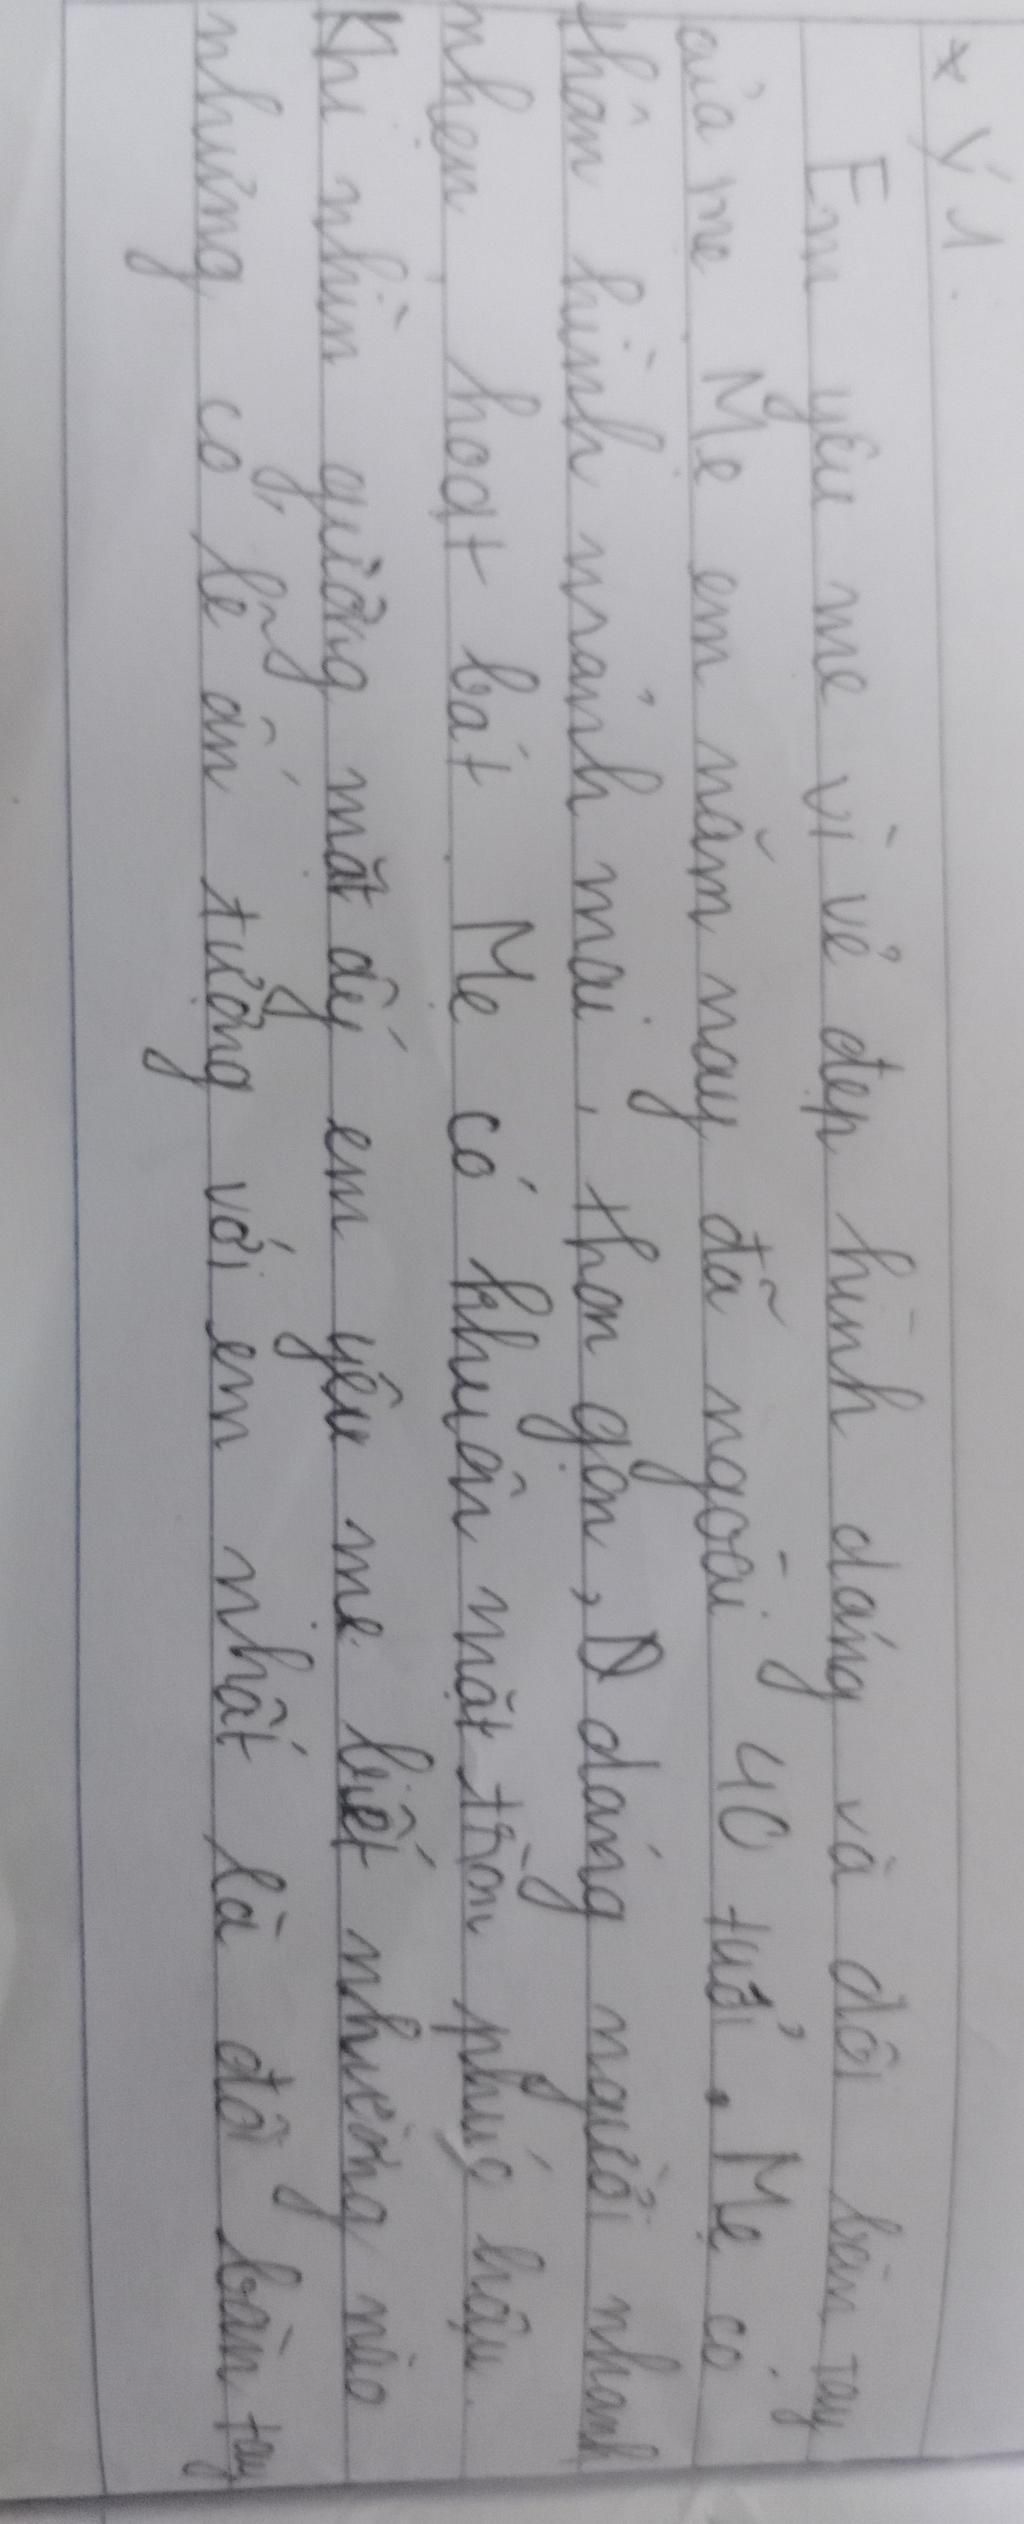 * Ý 1.
Em yêu mẹ vì vẻ đẹp hình dáng và đôi bàn tay
của mẹ. Mẹ em năm nay đã ngoài 40 tuổi. Mẹ có
thân hình mảnh mai, thon gọn, D dáng người nhanh
nhẹn, hoạt bát. Mẹ có khuôn mặt tròn phúc hậu.
Khi nhìn gương mặt ấy em yêu mẹ biết nhường nào
nhưng có lẽ ấn tượng với em nhất là đôi bàn tay